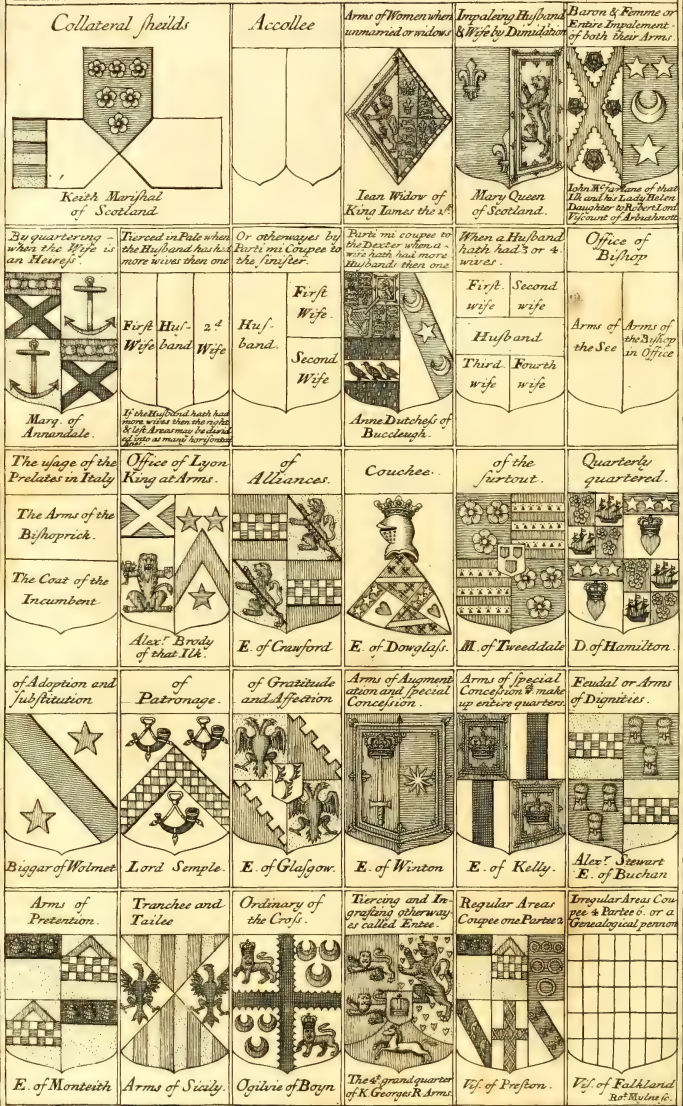 Collateral ſheilds
Keith Mariſhal
of Scotland
Accollee
Arms of Women when
unmarried or widows
Iean Widow of
King Iames the 1ſt.
Impaleing Huſband
& Wife by Dimidiation
Mary Queen
of Scotland.
Baron & Femme or
Entire Impalement
of both their Arms.
Iohn Mcfarlane of that
Ilk and his Lady Helen
Daughter to Robert Lord
Viſcount of Arbuthnott
By quartering
when the Wife is
an Heireſs.
Marq. of
Annandale.
Tierced in Pale when
the Huſband has had
more wives then one
Firſt Huſ- 2d
Wife band Wife
If the Huſband hath had
more wives then the right
& left Areas may be divid
ed into as many horiſontal
lines.
Or otherwayes by
Parti mi Coupee to
the ſiniſter.
Huſ-
band.
Firſt
Wife.
Second
Wife
Parti mi coupee to
the Dexter when a
wife hath had more
Huſbands then one
Anne Dutcheſs of
Buccleugh.
When a Huſband
hath had 3 or 4
wives.
Firſt. Second
wife wife
Huſband
Third Fourth
wife wife
Office of
Biſhop
Arms of
the See
Arms of
the Biſhop
in Office
The uſage of the
Prelates in Italy
The Arms of the
Biſhoprick.
The Coat of the
Incumbent
Office of Lyon
King at Arms.
Alexr. Brody
of that Ilk.
of
Alliances.
E. of Crawford
Couchee.
E. of Dowglaſs.
of the
ſurtout.
M. of Tweeddale
Quarterly
quartered.
D. of Hamilton.
of Adoption and
ſubſtitution
Biggar of Wolmet
of
Patronage.
Lord Semple.
of Gratitude
and Affection
E. of Glaſgow.
Arms of Augment
ation and ſpecial
Conceſsion.
E. of Winton
Arms of ſpecial
Conceſsion yt. make
up entire quarters.
E. of Kelly.
Feudal or Arms
of Dignities.
Alexr. Stewart
E. of Buchan
Arms of
Pretention.
E. of Monteith
Tranchee and
Tailee
Arms of Sicily.
Ordinary of
the Croſs.
Ogilvie of Boyn
Tiercing and In-
grafting otherway
es called Entee.
The 4t. grand quarter
of K. Georges R. Arms.
Regular Areas
Coupee one Partee 2
Viſ. of Preſton.
Irregular Areas Cou
pee 4 Partee 6. or a
Genealogical pennon
Viſ. of Falkland
Rot. Mylne ſc.